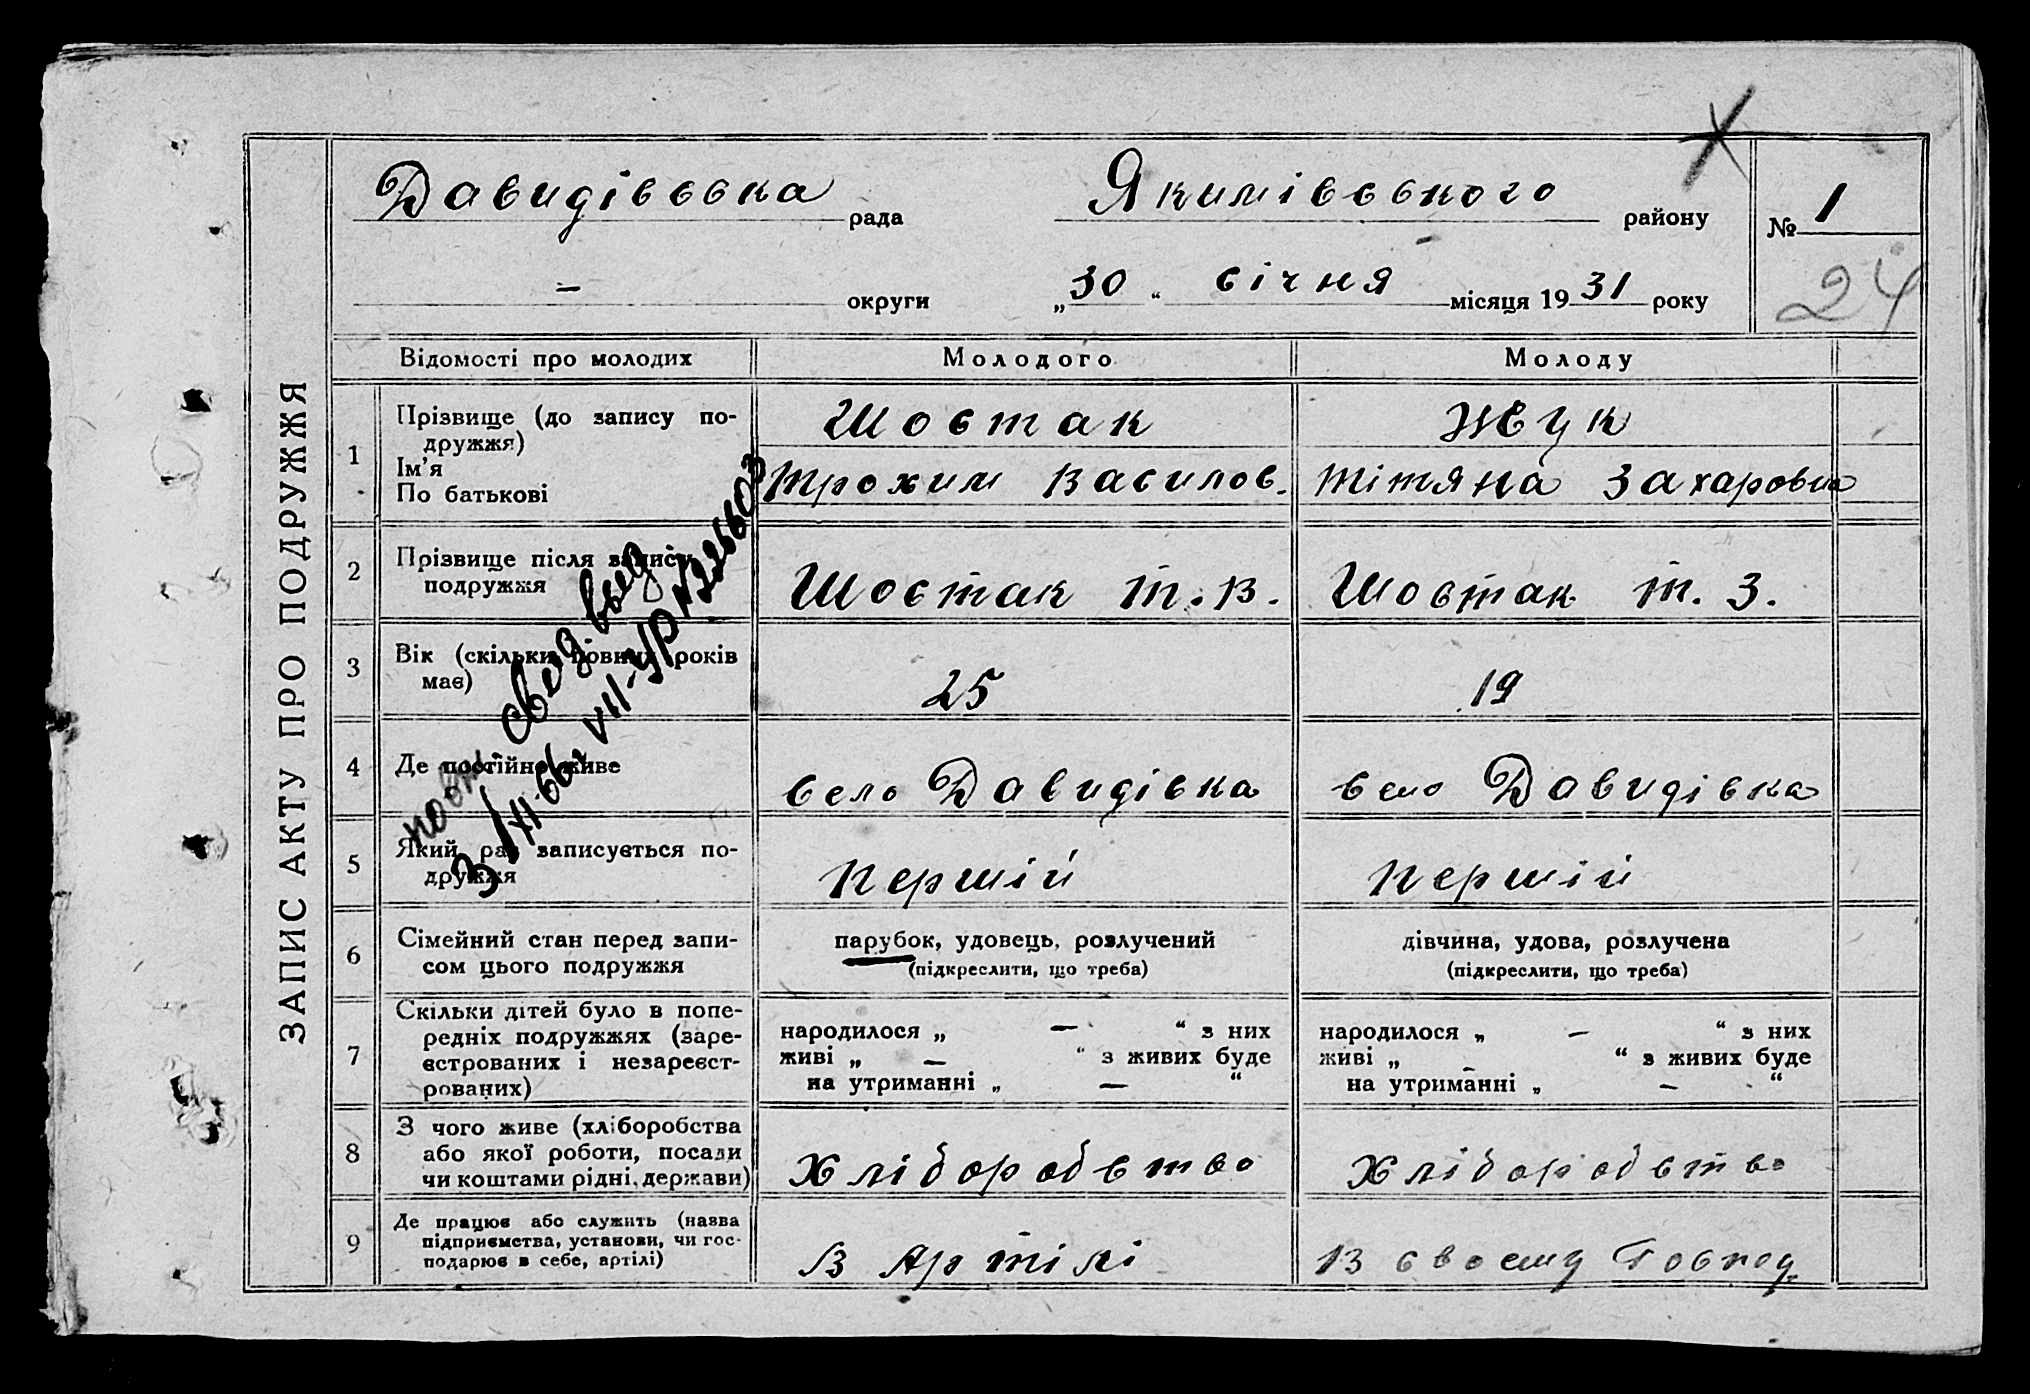 ЗАПИС АКТУ ПРО ПОДРУЖЖЯ
Давидівська рада Якимівського району № 1
– округи „30“ січня місяця 1931 року
24
Відомості про молодих Молодого Молоду
1 Прізвище (до запису по-
дружжя)
Ім’я
По батькові
Шостак Жук
Трохим Василов. Тітяна Захаровна
2 Прізвище після запису
подружжя
Шостак Т. В. Шостак Т. З.
3 Вік (скільки повних років
має)
25 19
4 Де постійно живе
село Давидівка село Давидівка
5 Який раз записується по-
дружжя
Першій Першій
повт. свид. выд
3/XI-66г VII-УР №226603
6 Сімейний стан перед запи-
сом цього подружжя
парубок, удовець, розлучений
(підкреслити, що треба)
дівчина, удова, розлучена
(підкреслити, що треба)
7 Скільки дітей було в попе-
редніх подружжях (заре-
єстрованих і незареєст-
рованих)
народилося „ – “ з них
живі „ – “ з живих буде
на утриманні „ – “
народилося „ – “ з них
живі „ – “ з живих буде
на утриманні „ – “
8 З чого живе (хліборобства
або якої роботи, посади
чи коштами рідні, держави)
Хліборобство Хліборобство
9 Де працює або служить (назва
підприємства, установи, чи гос-
подарює в себе, артілі)
В Артілі В своєму Господ.